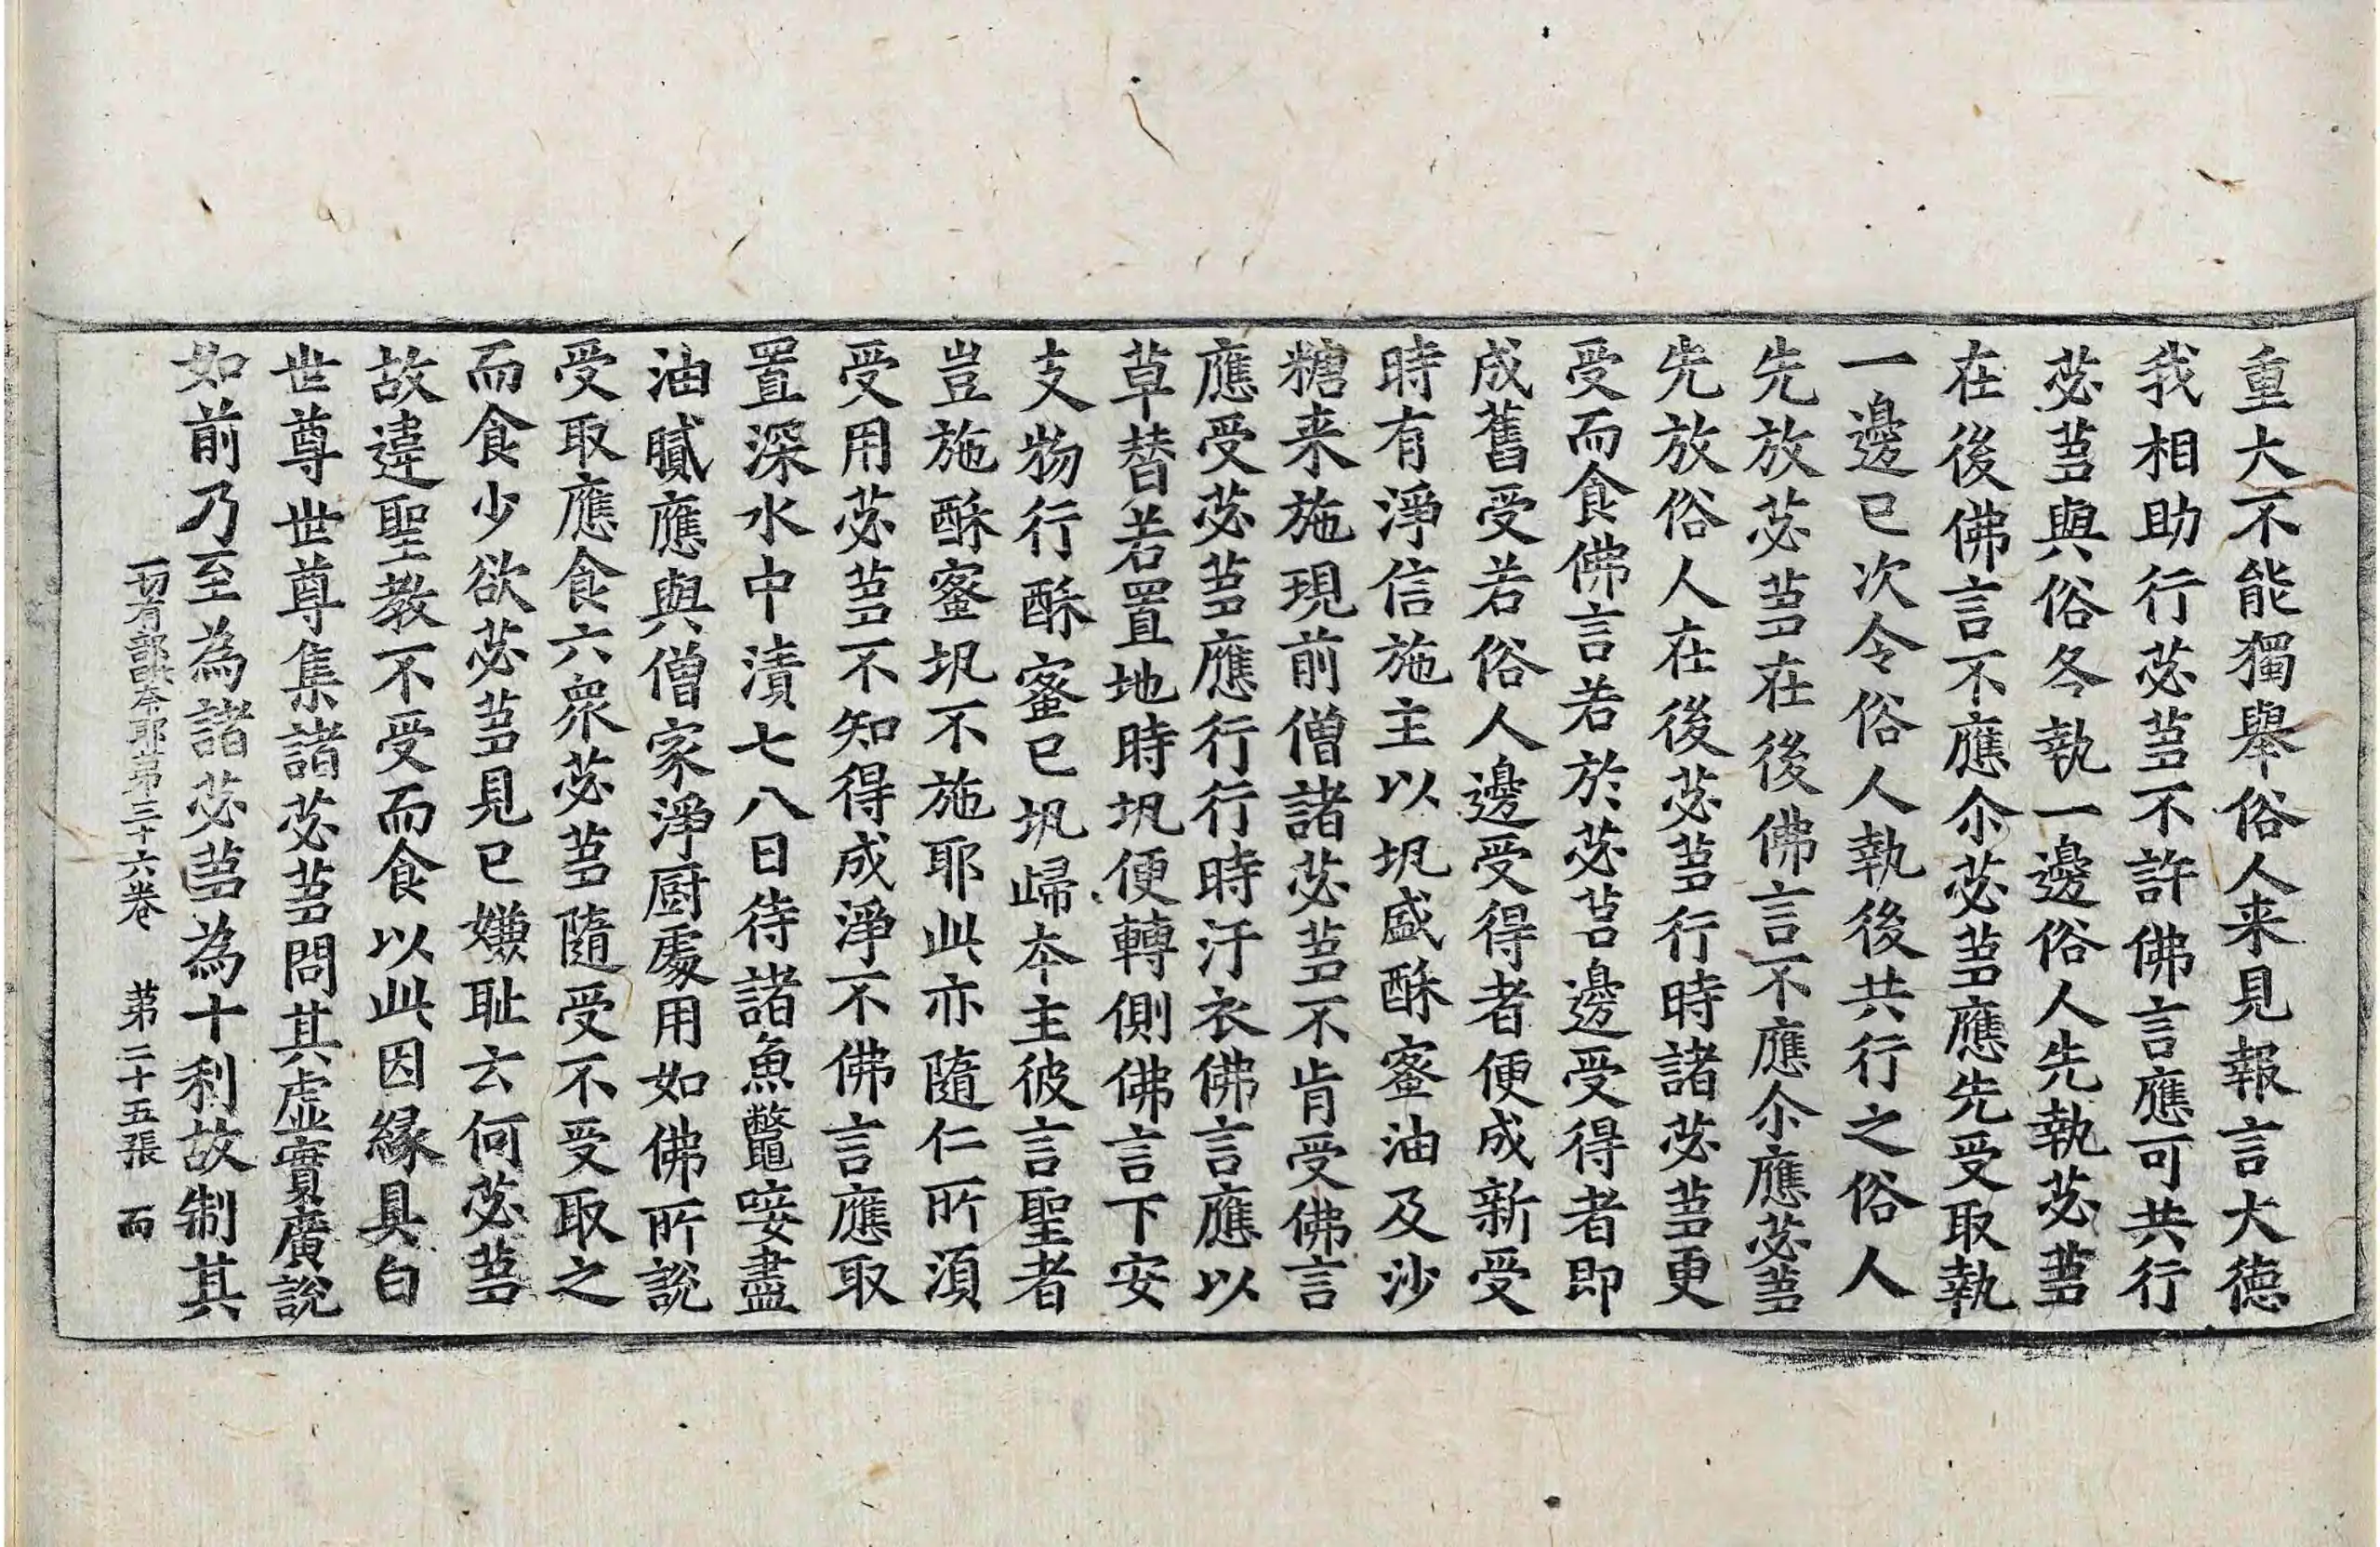 重大不能獨舉俗人来見報言大德
我相助行苾蒭不許佛言應可共行
苾蒭與俗各執一邊俗人先執苾蒭
在後佛言不應尒苾蒭應先受取執
一邊已次令俗人執後共行之俗人
先放苾蒭在後佛言不應尒應苾蒭
先放俗人在後苾蒭行時諸苾蒭更
受而食佛言若於苾蒭邊受得者即
成舊受若俗人邊受得者便成新受
時有淨信施主以坬盛酥蜜油及沙
糖来施現前僧諸苾蒭不肯受佛言
應受苾蒭應行行時汙衣佛言應以
草替若置地時坬便轉側佛言下安
支物行酥蜜已坬歸本主彼言聖者
豈施酥蜜坬不施耶此亦隨仁所須
受用苾蒭不知得成淨不佛言應取
置深水中漬七八日待諸魚鼈唼盡
油膩應與僧家淨厨處用如佛所說
受取應食六衆苾蒭隨受不受取之
而食少欲苾蒭見已嫌耻云何苾蒭
故違聖教不受而食以此因緣具白
世尊世尊集諸苾蒭問其虛實廣說
如前乃至為諸苾蒭為十利故制其
一切有部毗奈耶苐三十六卷　苐二十五張　而